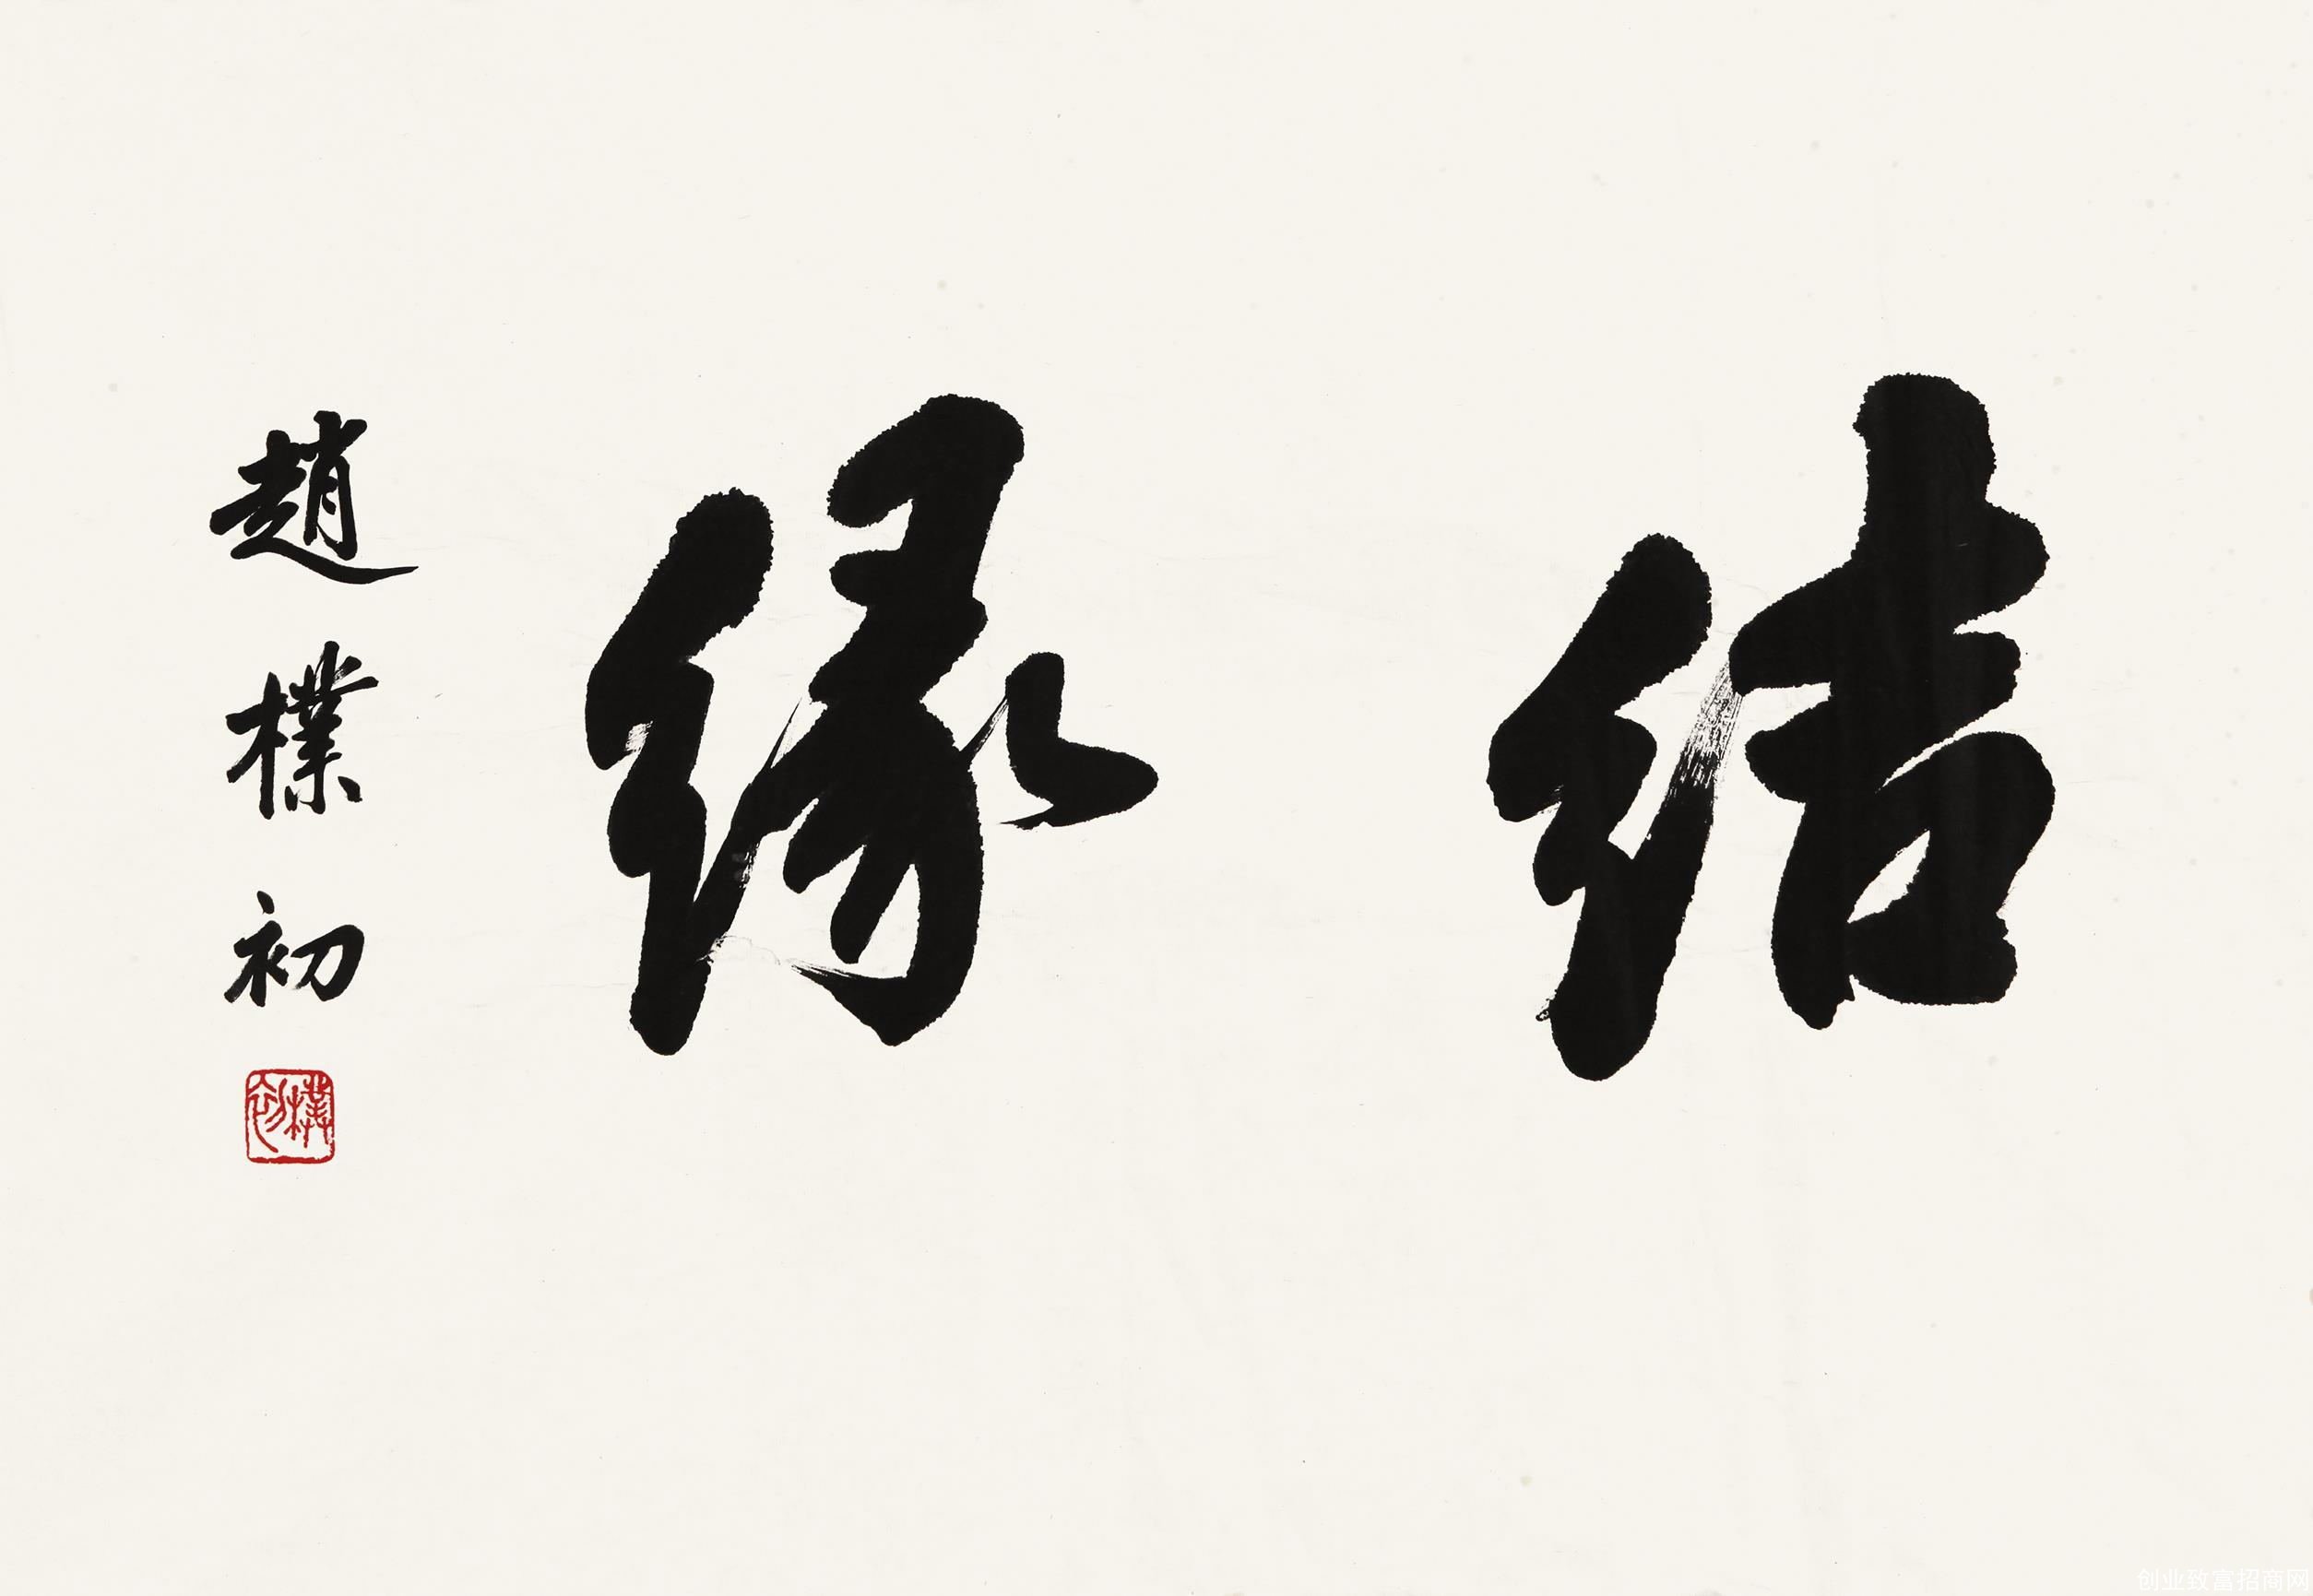 結緣
趙樸初
樸初
创业致富招商网